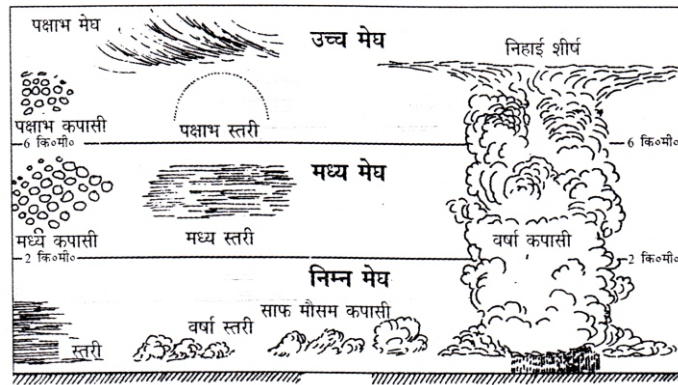 पक्षाभ मेघ
उच्च मेघ
निहाई शीर्ष
पक्षाभ कपासी
पक्षाभ स्तरी
6 कि०मी०
6 कि०मी०
मध्य मेघ
मध्य कपासी
मध्य स्तरी
वर्षा कपासी
2 कि०मी०
2 कि०मी०
निम्न मेघ
साफ मौसम कपासी
वर्षा स्तरी
स्तरी